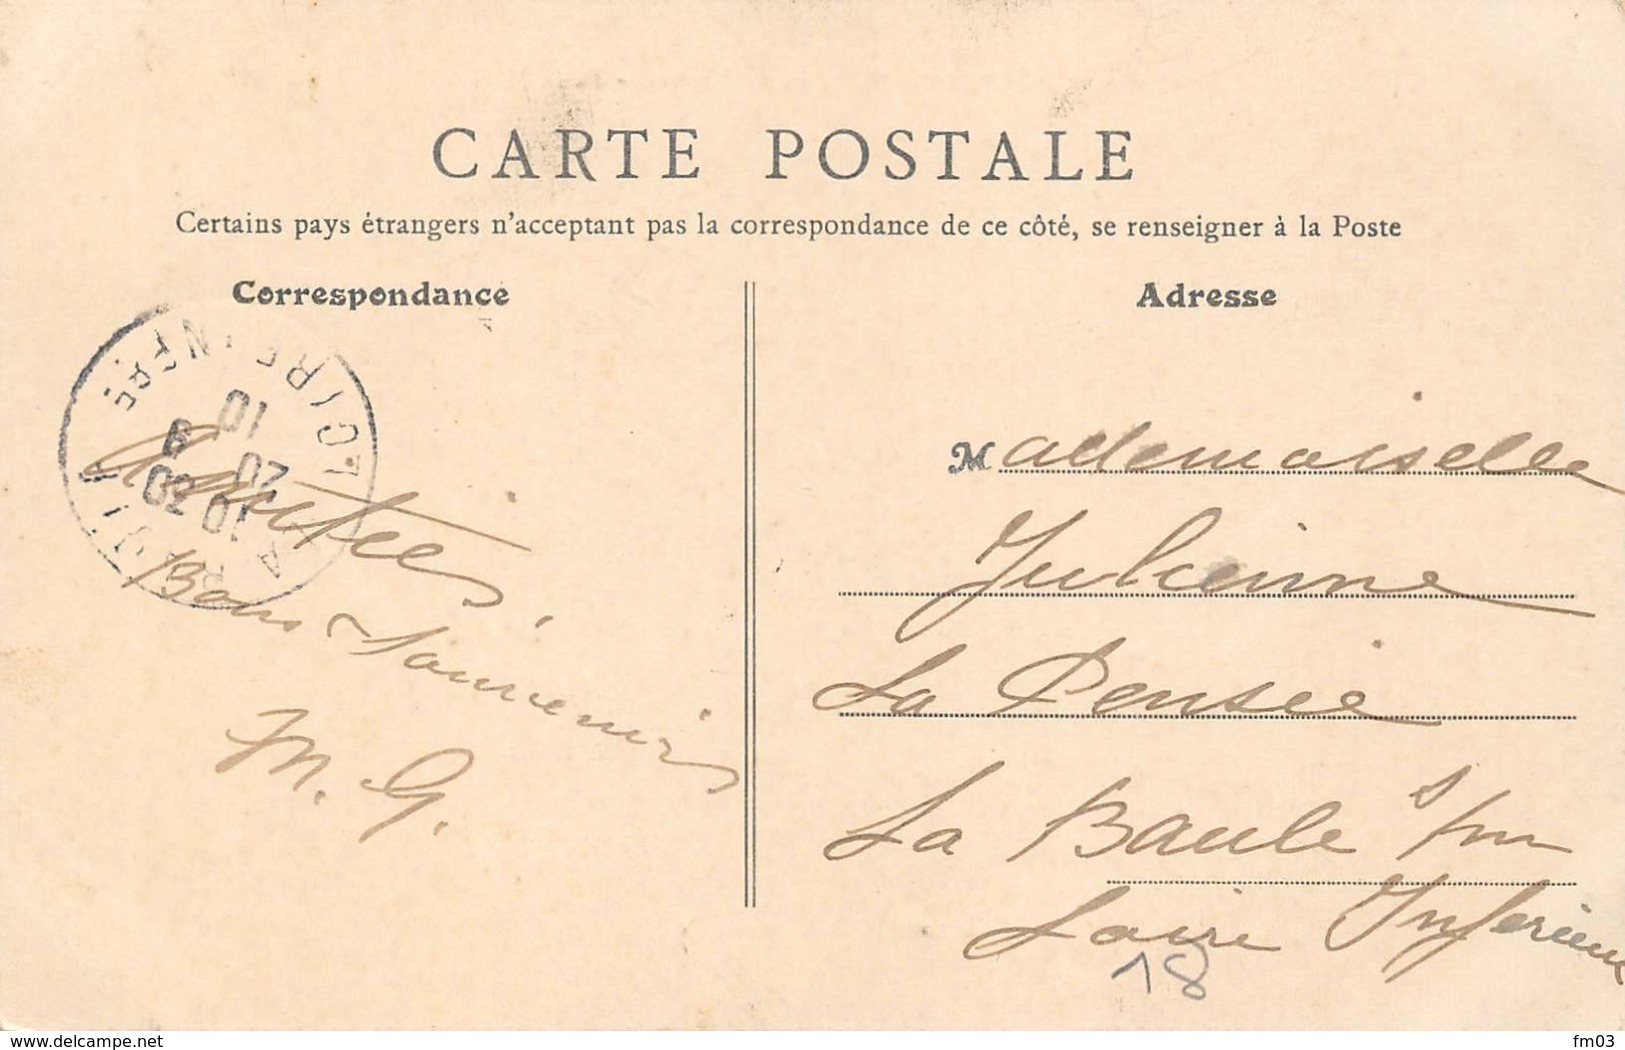 CARTE POSTALE
Certains pays étrangers n'acceptant pas la correspondance de ce côté, se renseigner à la Poste
Correspondance
Adresse
LOIRE INFRE
10
9
20
30
10
Amitiés
Bons Souvenirs
M. G.
Mademoiselle
Julienne
La Pensée
La Baule s/mer
Loire Inférieure
18
delcampe.net
fm03